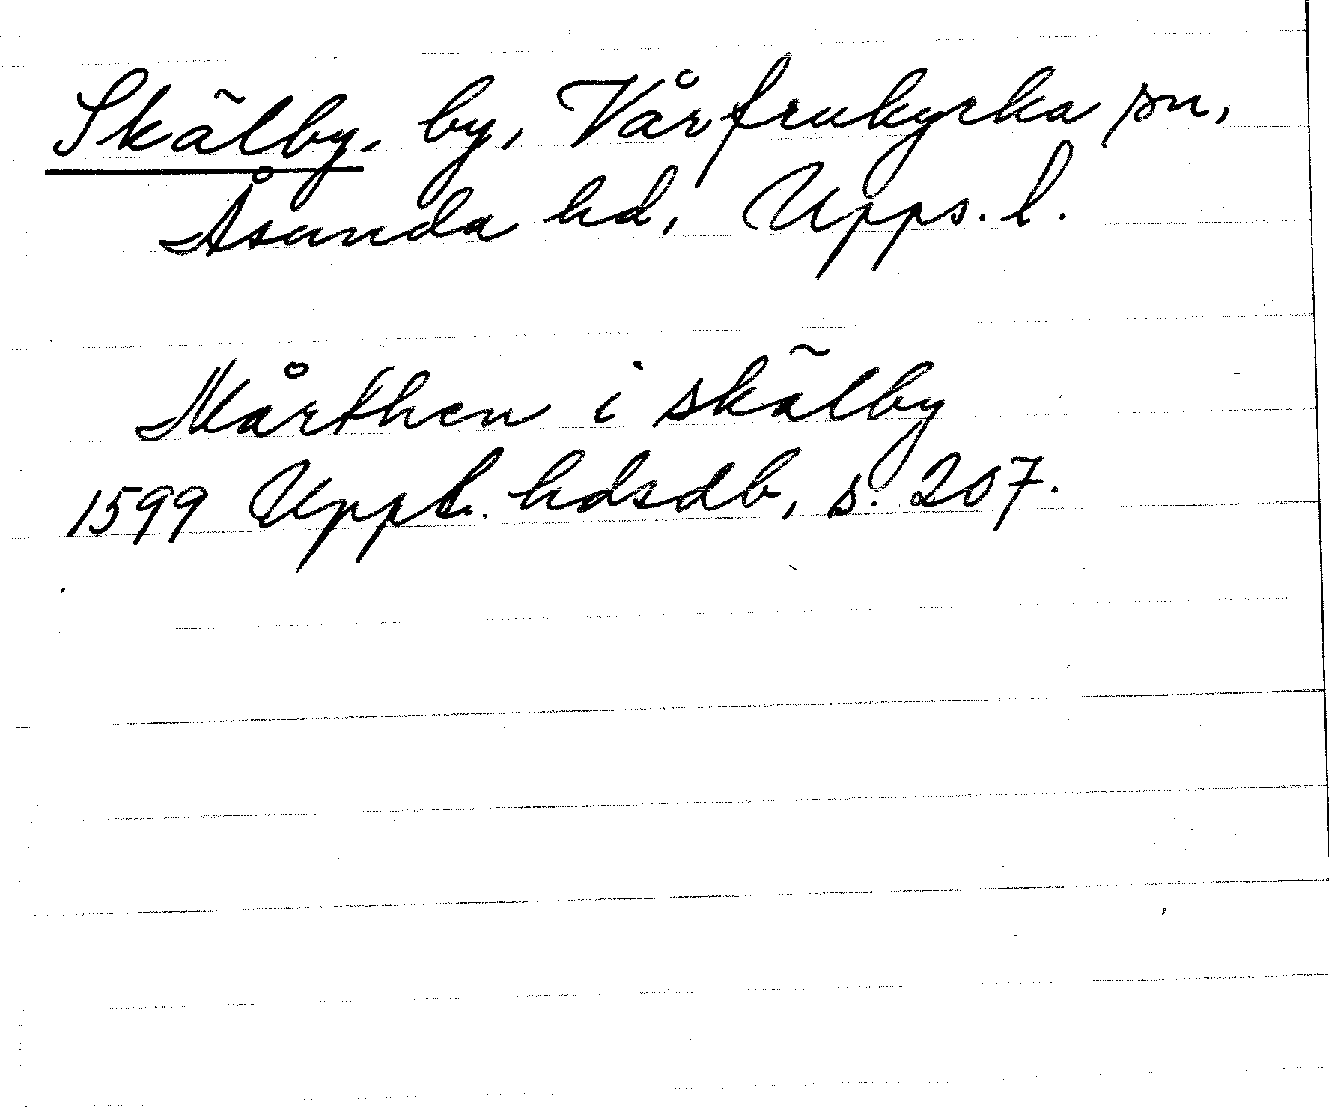 Skälby, by, Vårfrukyrka sn,
Åsunda hd, Upps. l.
Mårthen i skälby
1599 Uppl. hdsdb, s. 207.